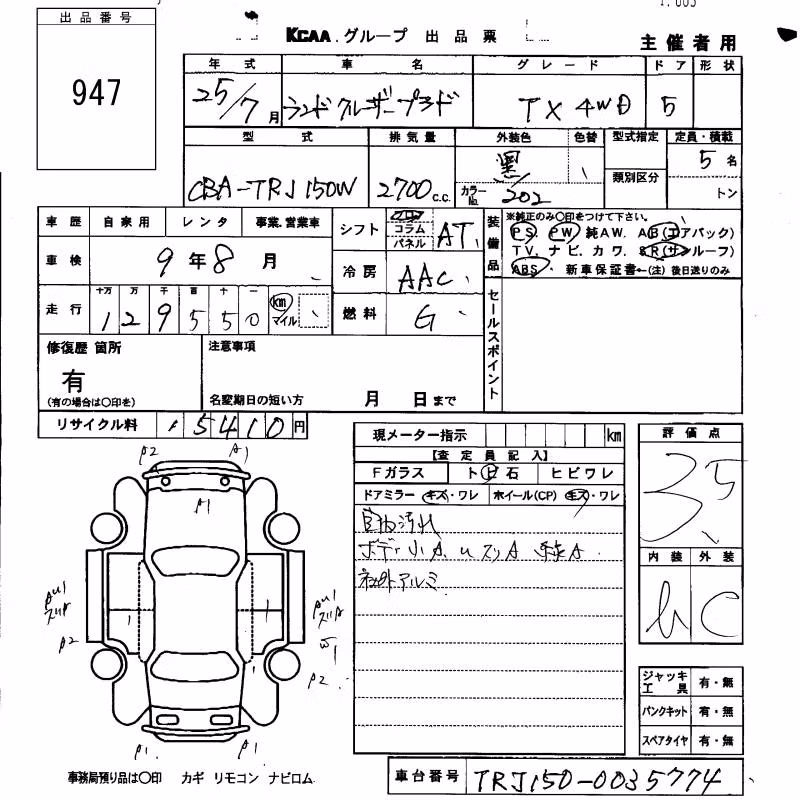 出品番号
947
KCAA.グループ 出品票
主催者用
年式 車名 グレード ドア 形状
25/7月 ランドクルーザープラド TX 4WD 5
型式 排気量 外装色 色替 型式指定 定員・積載
CBA-TRJ150W 2700c.c. 黒 類別区分 5名
カラーNo. 202 トン
車歴 自家用 レンタ 事業.営業車
シフト コラム パネル AT
装備品
※純正のみ○印をつけて下さい。
PS. PW 純AW. AB(エアバック)
TV. ナビ. カワ. SR(サンルーフ)
ABS. 新車保証書←(注) 後日送りのみ
車検 9年8月
冷房 AAC
走行 十万 万 千 百 十 一
129550 km マイル
燃料 G
セールスポイント
修復歴 箇所
有
(有の場合は○印を)
注意事項
名変期日の短い方 月 日まで
リサイクル料 15410円
現メーター指示 km
【査定員記入】
Fガラス ト ビ 石 ヒビワレ
ドアミラー キズ・ワレ ホイール(CP) キズ・ワレ
内汚れ
ボディ小A.U スリA
社外アルミ
評価点
3.5
内装 外装
C
A2 A1
A1
AU1
スリA
A2
AU1
スリA
W1
A2
A1 A1
ジャッキ工具 有・無
パンクキット 有・無
スペアタイヤ 有・無
事務局預り品は○印 カギ リモコン ナビロム
車台番号 TRJ150-0035774